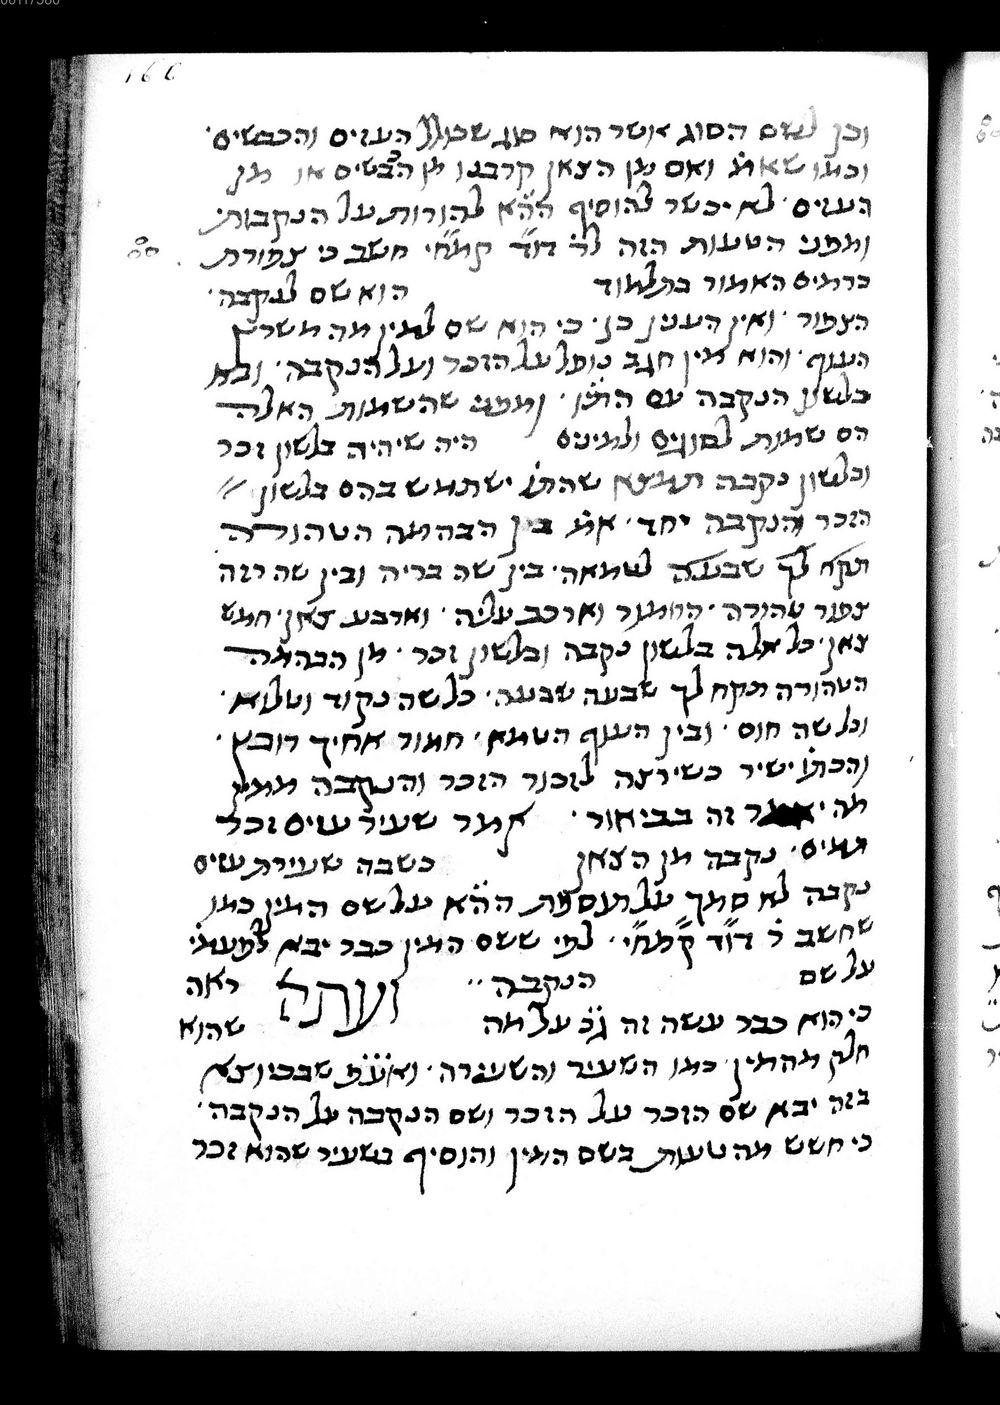 וכן לשם הסוג אשר הוא סוג שכולל העזים והכבשים·
וכמו שאמ׳ ואם מן הצאן קרבנו מן הכבשים או מן
העזים· לא יכשר להוסיף הה״א להורות על הנקבות·
ומפני הטעות הזה לר׳ דו״ד קמח״י· חשב כי צפורת
כרמים האמור בתלמוד הוא שם לנקבה·
הצפור· ואין הענין כן· כי הוא שם למין מה משרץ
העוף· והוא מין חגב נופל על הזכר ועל הנקבה· ובא
בלשון הנקבה עם התי״ו· ומפני שהשמות האלה
הם שמות לסוגים ולמינים היה שיהיה בלשון זכר
ובלשון נקבה תמצא שהתו׳ ישתמש בהם בלשון
הזכר והנקבה יחד· אמ׳ בין הבהמה הטהורה
תקח לך שבעה לטמאה· בין שה בריה ובין שה רזה
צפור טהורה· החמור וארכב עליה· וארבע צאן· חמש
צאן· כל אלה בלשון נקבה ובלשון זכר· מן הבהמה
הטהורה תקח לך שבעה שבעה· כל שה נקוד וטלוא·
וכל שה חום· ובין העוף הטמא· חמור אחיך רובץ·
והכתו׳ ישיר כשירצה לזכור הזכר והנקבה ממין
מה זה בביאור· אמר שעיר עזים זכר
תמים· נקבה מן הצאן כשבה שעירת עזים
נקבה לא סמך על תוספת הה״א על שם המין כמו
שחשב ר׳ דו״ד קמח״י· לפי ששם המין כבר יבא
על שם הנקבה·· ועתה ראה
כי הוא כבר עשה זה ג״כ על מה שהוא
חלק מהמין· כמו השעיר והשעירה· ואע״פ שבכיוצא
בזה יבא שם הזכר על הזכר ושם הנקבה על הנקבה·
כי חשש מה טעות בשם המין והוסיף בשעיר שהוא זכר